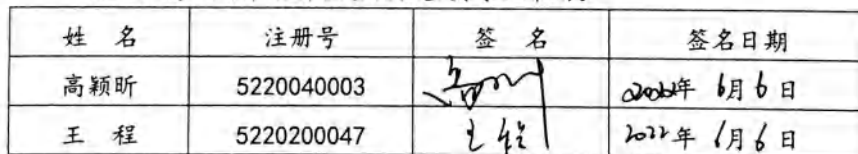 姓 名 注册号 签 名 签名日期
高颖昕 5220040003 2022年 6月 6日
王 程 5220200047 王程 2022年 6月6日